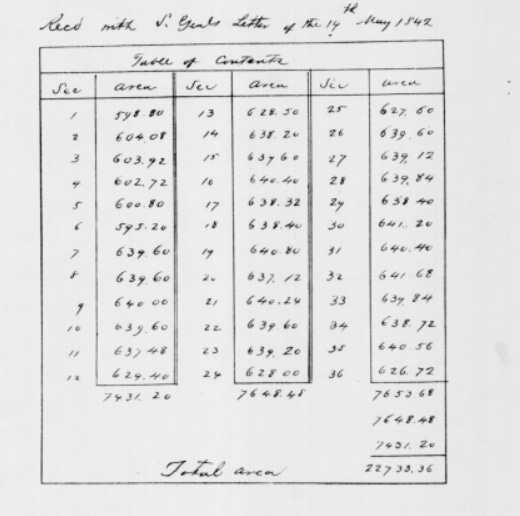 Recd with S. Genls Letter of the 14th May 1842
Table of Contents
Sec area Sec area Sec area
1 598.80 13 628.50 25 627.60
2 604.08 14 638.20 26 639.60
3 603.92 15 639 60 27 639.12
4 602.72 16 640.40 28 639.84
5 600.80 17 638.32 29 638 40
6 595.20 18 638.40 30 641.20
7 639.60 19 640.80 31 640.40
8 639.60 20 637.12 32 641 68
9 640 00 21 640.24 33 639.84
10 639.60 22 639 60 34 638.72
11 637.48 23 639.20 35 640.56
12 629.40 24 628 00 36 626.72
7431.20 7648.48 7653 68
7648.48
7431.20
Total area 22733.36